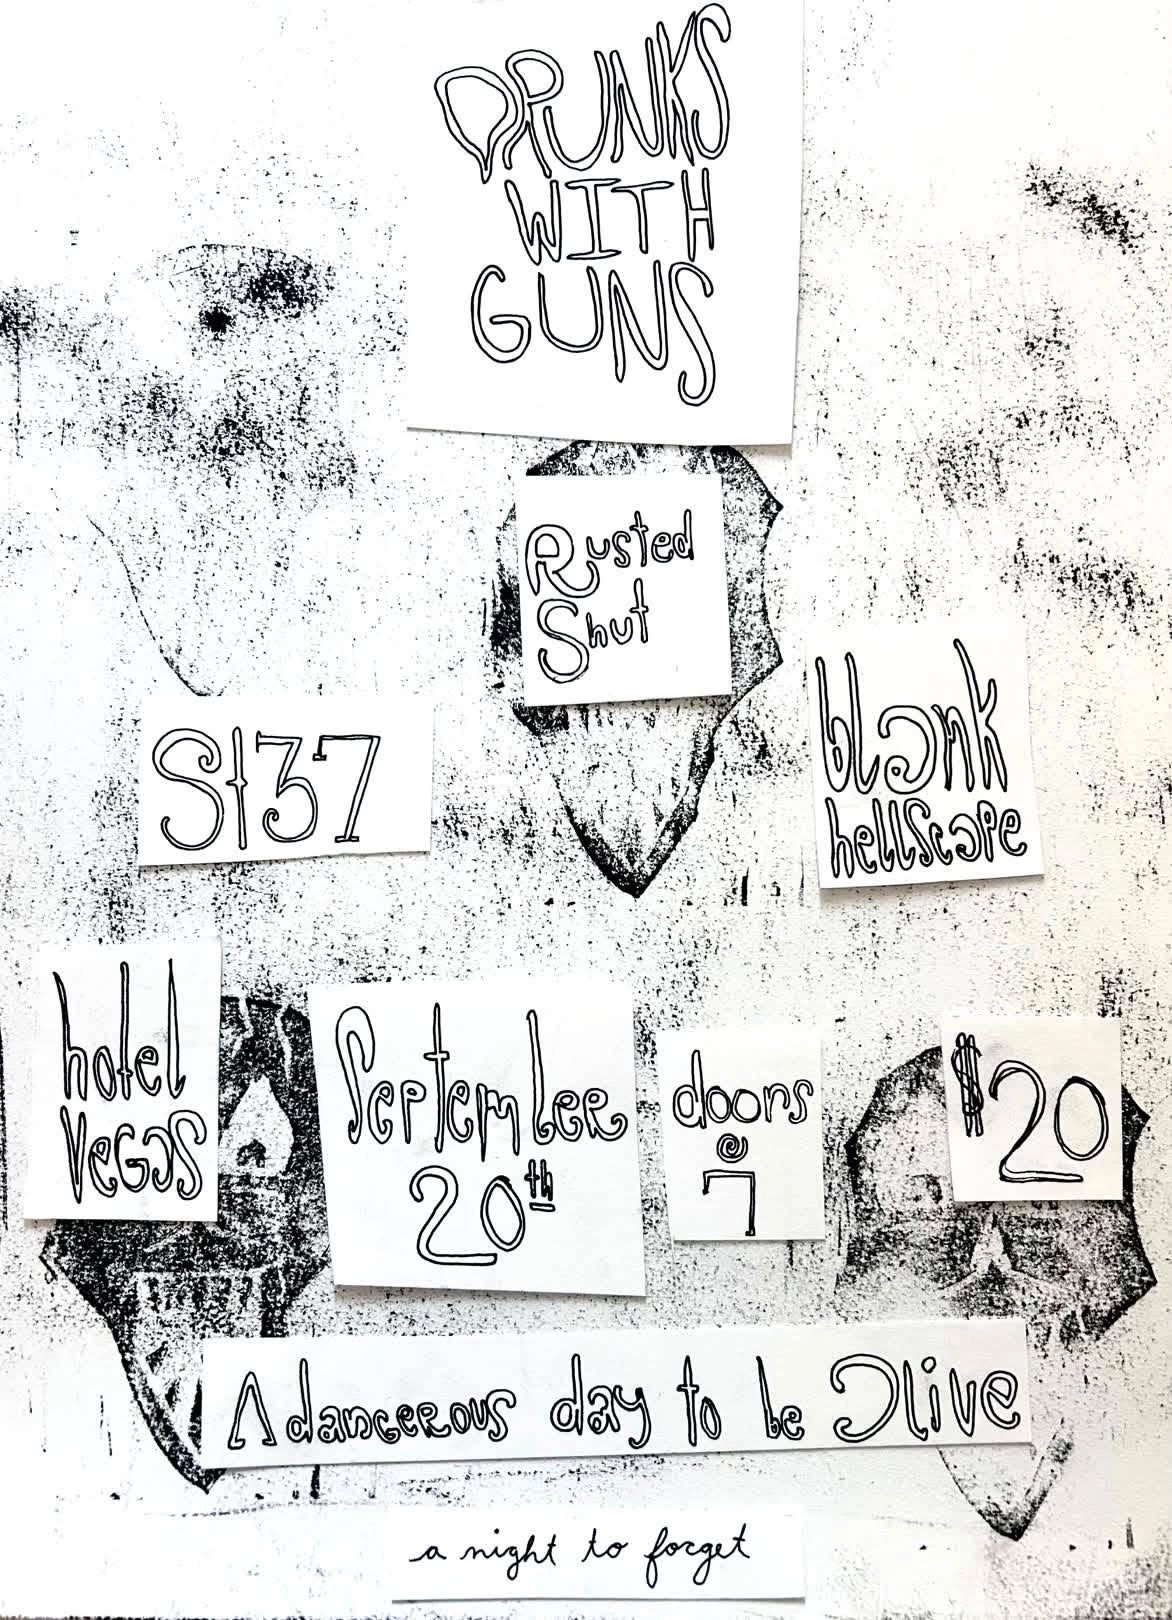 DRUNKS
WITH
GUNS
Rusted
Shut
St37
blank
hellscape
hotel
VeGas
September
20th
doors
@
7
$20
A dangerous day to be alive
a night to forget